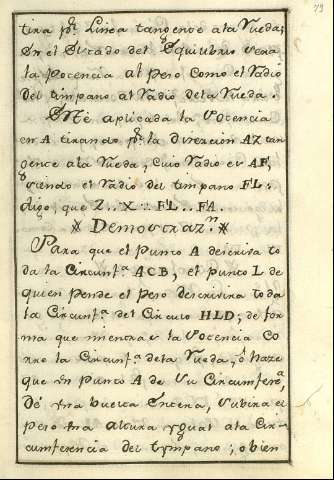 79
tira pr. Linea tangente ala Rueda;
en el Estado del Equilibrio sera
la Potencia al Peso como el Radio
del timpano al Radio dela Rueda.
Esté aplicada la Potencia
en A tirando pr. la direccion AZ tan
gente ala Rueda, cuio Radio es AF,
siendo el Radio del timpano FL:
digo que Z..X:: FL..FA.
Demostraz.n
Para que el punto A descriva to
da la Circunf.a ACB, el punto L de
quien pende el peso descrivira toda
la Circunf.a del Circulo HLD; de for
ma que mientras la Potencia co
rre la Circunf.a dela Rueda, ó haze
que un punto A de su Circumfer.a,
dé una buelta entera, subira el
peso una altura ygual ala Cir-
cumferencia del tympano; o bien